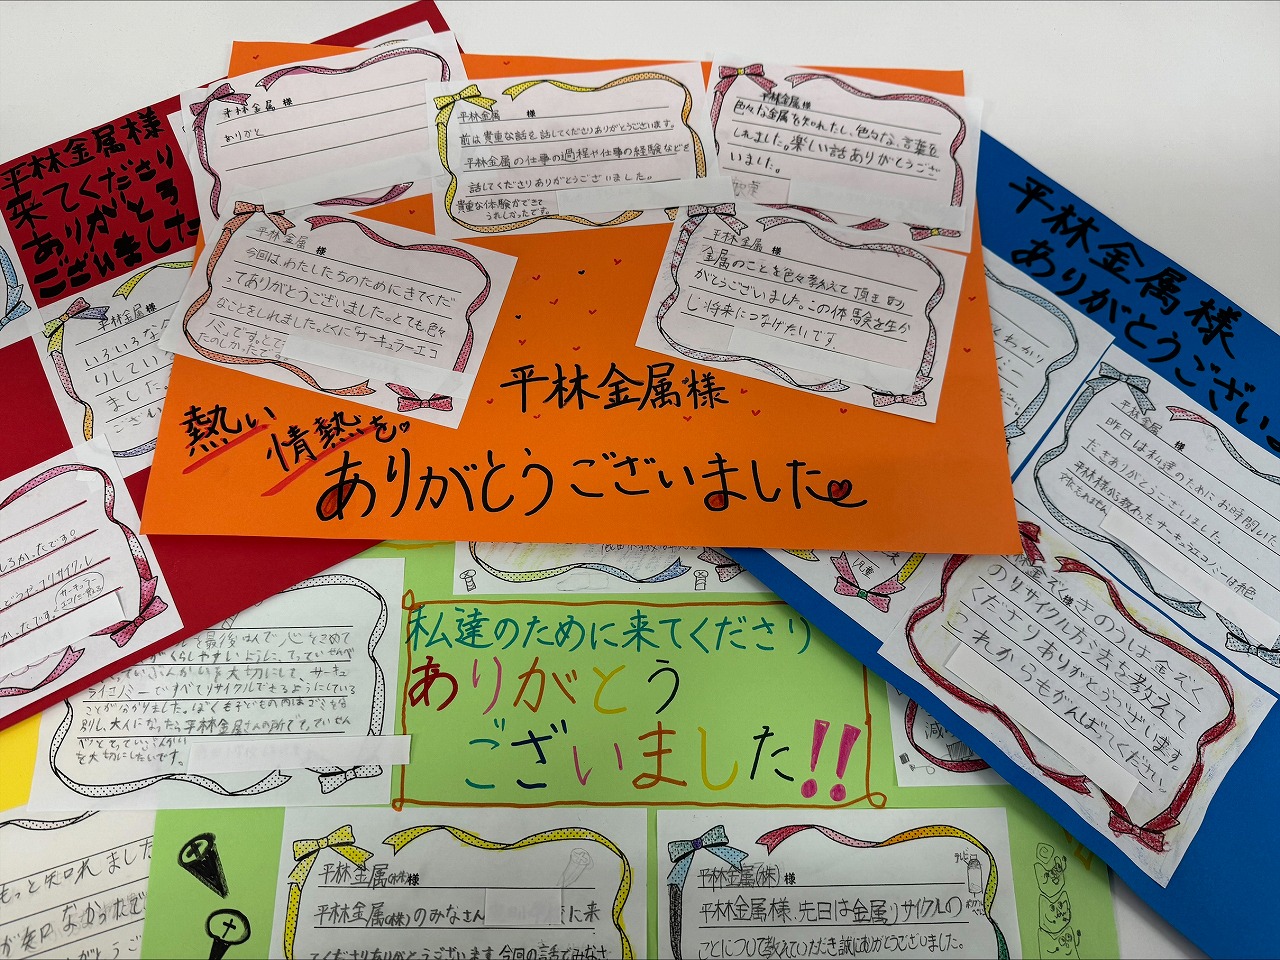 平林金属様
来てくださり
ありがとう
ございました
平林金属 様
ありがと
平林金属 様
前は貴重な話を話してくださりありがとうございます。
平林金属の仕事の過程や仕事の経験などを
話してくださりありがとうございました。
貴重な体験ができて
うれしかったです。
平林金属様
色々な金属を知れたし、色々な、言葉を
しれました。楽しい話ありがとうござ
いました。
平林金属 様
今回は、わたしたちのためにきてくだ
ってありがとうございました。とても色々
なことをしれました。とくに「サーキュラーエコ
ノミ」です。とて
たのしかったです。
平林金属 様
金属のことを色々教えて頂きあり
がとうございました。この体験を生か
し将来につなげたいです。
平林金属様
熱い情熱を
ありがとうございました
平林金属様
ありがとうござい
平林金属 様
いろいろな
りしてい
ました。
ござい
しろかったです。
どうやってリサイクル
サーキュラー
かったです。
平林金属 様
昨日は私達のためにお時間いた
だきありがとうございました。
平林様から教わったサーキュラエコノミーは絶
対忘れません
きのうは金ぞく
のリサイクル方法を教えて
くださりありがとうございます。
これからもがんばってください。
私達のために来てくださり
ありがとう
ございました!!
を最後はんで心をこめて
がくらしやすいように、てっていせんべ
つとてっていぶんかいを大切にして、サーキュ
ライコノミーですべてリサイクルできるようにしている
ことが分かりました。ぼくも子どもの内はゴミを分
別し、大人になったら平林金属さんの所でてっていせん
べつとてっていぶんかい
を大切にしたいです。
もっと知れました
平林金属(株)様
平林金属(株)のみなさん
に来
てくださりありがとうございます。今回の話でみなさ
テレビ
平林金属(株)様
平林金属様、先日は金属リサイクルの
ことについて教えていただき誠にありがとうございました。